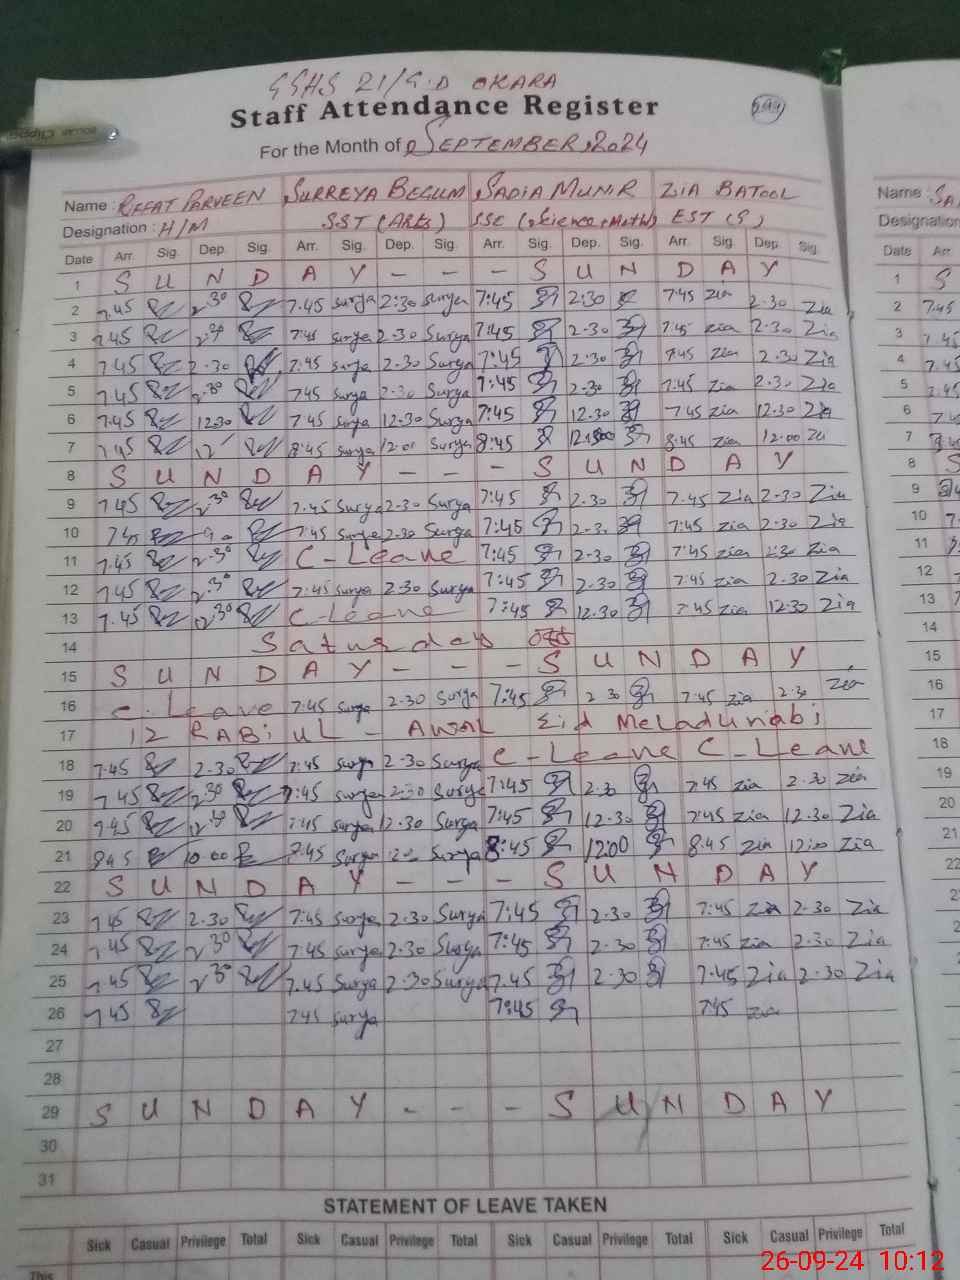 GGHS 21/G.D OKARA
Staff Attendance Register
For the Month of SEPTEMBER, 2024
Name : RIFFAT PARVEEN SURREYA BEGUM SADIA MUNIR ZIA BATOOL
Designation : H/M SST (ARTS) SSE (Science+Math) EST (S)
Date Arr. Sig. Dep. Sig. Arr. Sig. Dep. Sig. Arr. Sig. Dep. Sig. Arr. Sig. Dep. Sig.
1 S U N D A Y - - - S U N D A Y
2 7.45 2.30 7.45 surya 2:30 surya 7:45 2:30 7:45 zia 2.30 Zia
3 7.45 2.30 7:45 surya 2.30 Surya 7:45 2.30 7:45 zia 2.30 Zia
4 7.45 2.30 7:45 surya 2.30 Surya 7:45 2.30 7:45 zia 2.30 Zia
5 7.45 2.30 7:45 Surya 2.30 Surya 7:45 2.30 7:45 Zia 2.30 Zia
6 7.45 12.30 7:45 surya 12.30 Surya 7:45 12.30 7:45 zia 12.30 Zia
7 7.45 12 8:45 surya 12.00 Surya 8:45 12.00 8:45 zia 12.00 Zia
8 S U N D A Y - - - S U N D A Y
9 7.45 2.30 7.45 Surya 2.30 Surya 7:45 2.30 7.45 Zia 2.30 Zia
10 7.45 7:45 Surya 2.30 Surya 7:45 2.30 7:45 zia 2.30 Zia
11 7.45 2.30 C-Leave 7:45 2.30 7:45 zia 2:30 Zia
12 7.45 2.30 7.45 surya 2.30 Surya 7:45 2.30 7:45 zia 2.30 Zia
13 7.45 12.30 C-Leave 7:45 12.30 7:45 zia 12.30 Zia
14 Saturday off
15 S U N D A Y - - - S U N D A Y
16 C-Leave 7:45 surya 2.30 Surya 7:45 2.30 7:45 zia 2.30 zia
17 12 RABi UL - AWAL Eid Meladunabi
18 7.45 2.30 7:45 surya 2.30 Surya C-Leave C-Leave
19 7.45 2.30 7:45 surya 2:30 Surya 7:45 2.30 7:45 zia 2.30 zia
20 7.45 12.30 7:45 surya 12.30 Surya 7:45 12.30 7:45 zia 12.30 Zia
21 8.45 10.00 8.45 Surya Surya 8:45 1200 8.45 zia 12:00 Zia
22 S U N D A Y - - - S U N D A Y
23 7.45 2.30 7:45 surya 2.30 Surya 7:45 2.30 7:45 zia 2.30 Zia
24 7.45 2.30 7.45 surya 2.30 Surya 7:45 2.30 7:45 zia 2.30 Zia
25 7.45 2.30 7.45 Surya 2.30 Surya 7.45 2.30 7.45 Zia 2.30 Zia
26 7.45 7.45 surya 7:45 7:45 zia
27
28
29 S U N D A Y - - - S U N D A Y
30
31
STATEMENT OF LEAVE TAKEN
Sick Casual Privilege Total Sick Casual Privilege Total Sick Casual Privilege Total Sick Casual Privilege Total
This
26-09-24 10:12
Name :
Designation
Date Arr
1 S
2 7.45
3 7.45
4 7.45
5 7.45
6
7
8 S
9
10
11
12
13
14
15
16
17
18
19
20
21
22
23
24